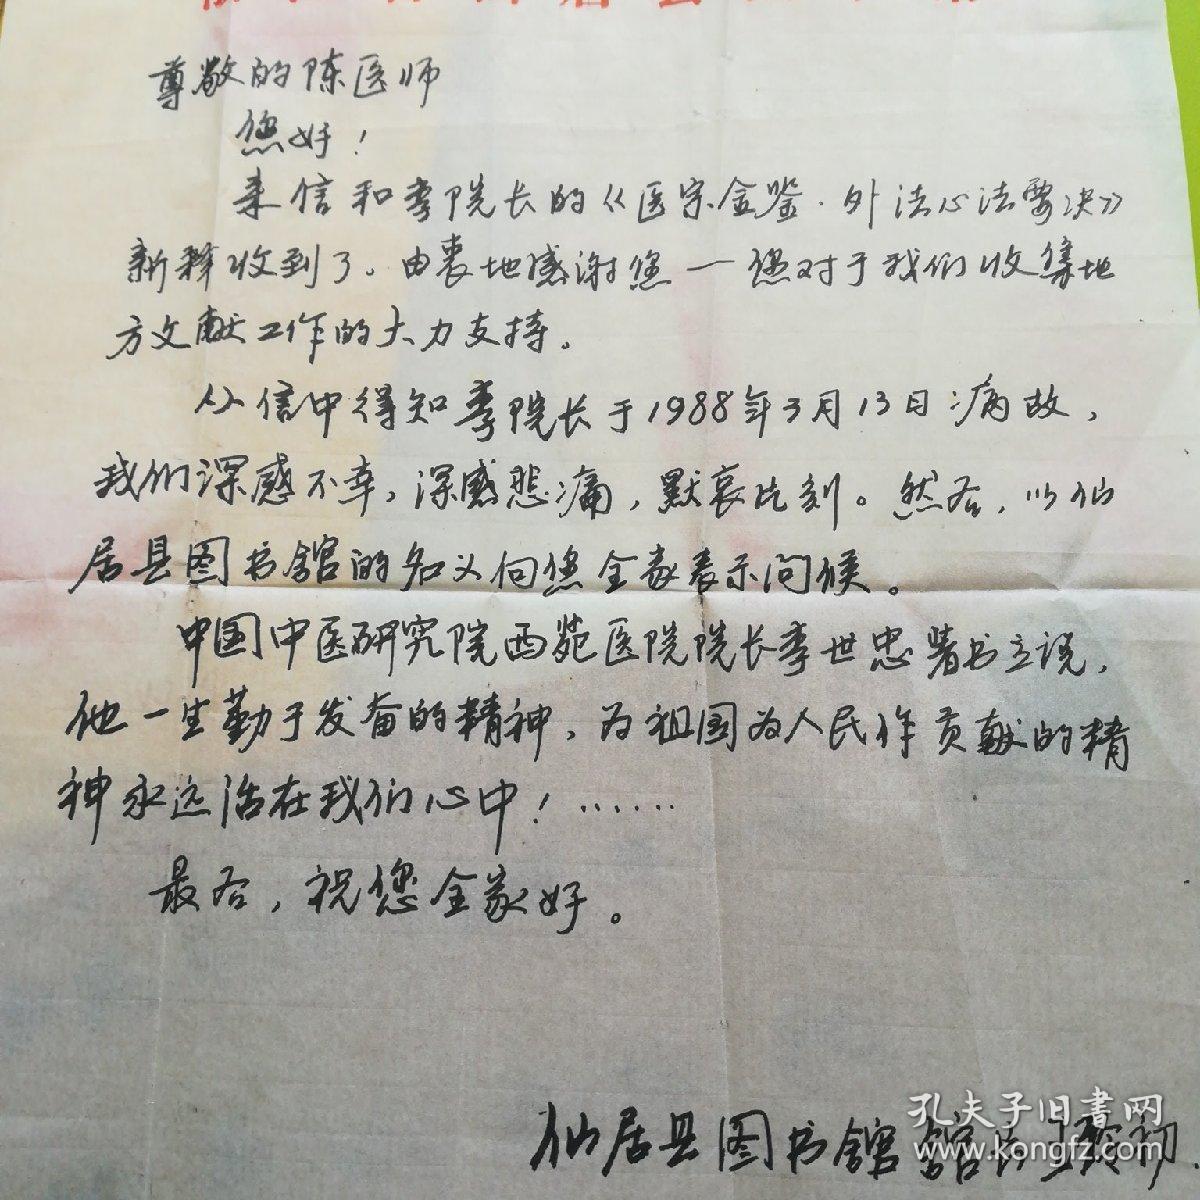 尊敬的陈医师
您好！
来信和李院长的《医宗金鉴·外法心法要决》
新释收到了。由衷地感谢您一您对于我们收集地
方文献工作的大力支持。
从信中得知李院长于1988年3月13日病故，
我们深感不幸，深感悲痛，默哀片刻。然后，以仙
居县图书馆的名义向您全家表示问候。
中国中医研究院西苑医院院长李世忠著书立说，
他一生勤于发奋的精神，为祖国为人民作贡献的精
神永远活在我们心中！……
最后，祝您全家好。
仙居县图书馆馆员王
孔夫子旧书网
www.kongfz.com